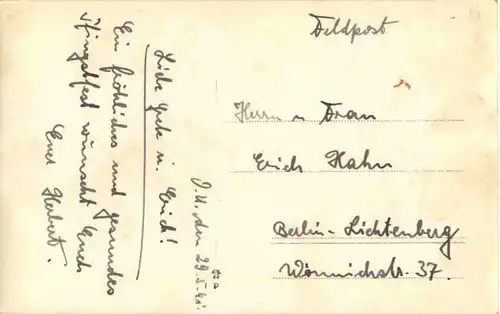 Feldpost
Herrn u Frau
Erich Hahn
Berlin-Lichtenberg
Wönnichstr. 37.
O.U. den 29.5.41.
Liebe Grete u. Erich!
Ein fröhliches und gesundes
Pfingstfest wünscht Euch
Euer Herbert.